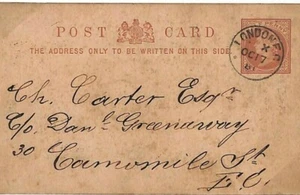 POST CARD
THE ADDRESS ONLY TO BE WRITTEN ON THIS SIDE.
LONDON E.C
X
OC 17
Ch. Carter Esqr.
C/o Danl. Greenaway
30 Camomile St
E.C.